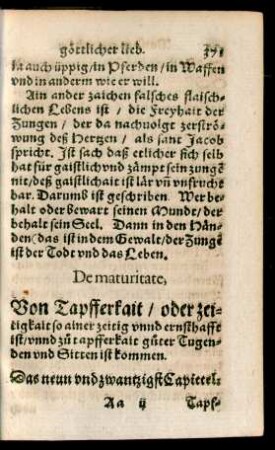 göttlicher lieb.
ja auch üppig / in Pferden / in Waffen
vnd in anderm wie er will.
Ain ander zaichen falsches flaisch-
lichen Lebens ist / die Freyhait der
Zungen / der da nachuolgt zerströ-
wung deß Hertzen / als sant Jacob
spricht. Ist sach daß etlicher sich selb
hat für gaistlich vnd zämpt sein zungē
nit / deß gaistlichait ist lär vn̄ vnfrucht
bar. Darumb ist geschriben. Wer be-
halt oder bewart seinen Munde / der
behalt sein Seel. Dann in den Hän-
den (das ist in dem Gewalt / der Zungē
ist der Todt vnd das Leben.
De maturitate,
Von Tapfferkait / oder zei-
tigkait so ainer zeitig vnnd ernsthafft
ist / vnnd zů tapfferkait gůter Tugen-
den vnd Sitten ist kommen.
Das neun vnd zwantzigst Capittel:
Aa ij Tapf-